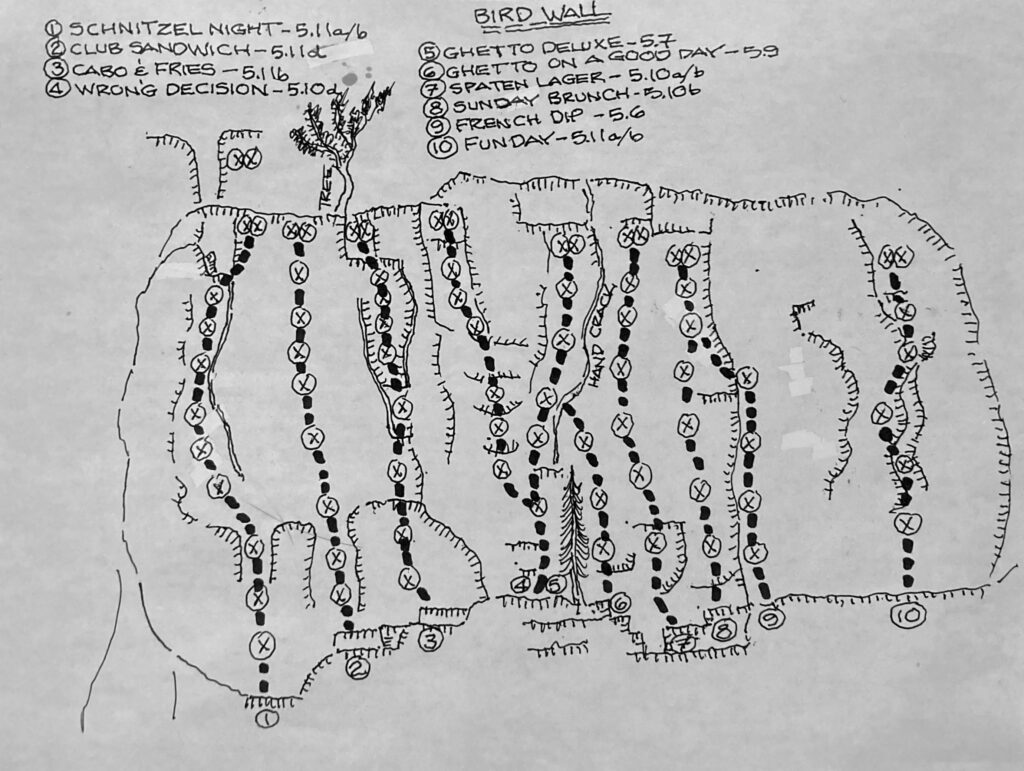 BIRD WALL
① SCHNITZEL NIGHT - 5.11a/b
② CLUB SANDWICH - 5.11d
③ CABO & FRIES - 5.11b
④ WRONG DECISION - 5.10d
⑤ GHETTO DELUXE - 5.7
⑥ GHETTO ON A GOOD DAY - 5.9
⑦ SPATEN LAGER - 5.10a/b
⑧ SUNDAY BRUNCH - 5.10b
⑨ FRENCH DIP - 5.6
⑩ FUNDAY - 5.11a/b
TREE
HAND CRACK
④ ⑤
⑥
③
⑦
⑧
⑨
⑩
②
①